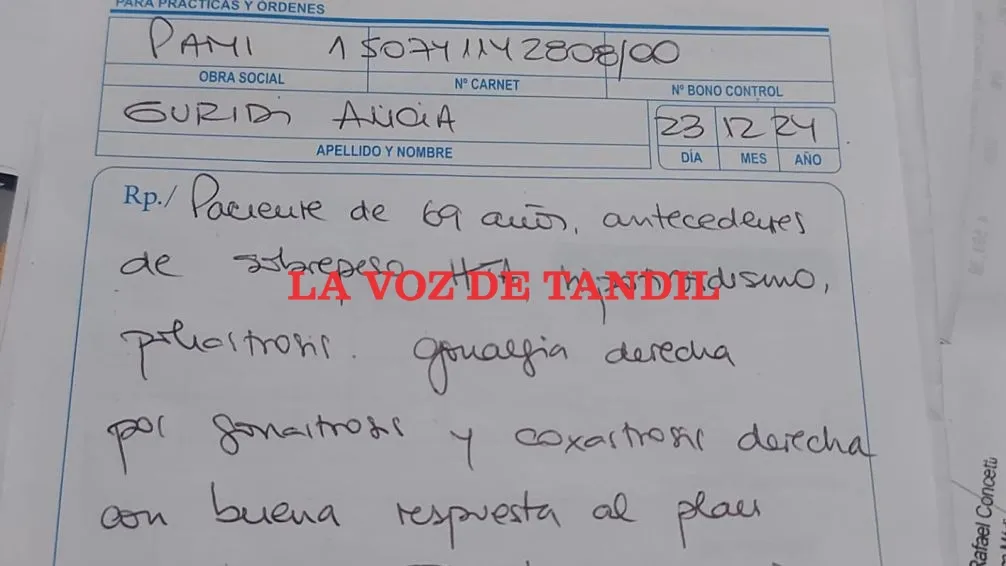 PARA PRÁCTICAS Y ÓRDENES
PAMI 150741142808/00
OBRA SOCIAL Nº CARNET Nº BONO CONTROL
GURIDI ALICIA 23 12 24
APELLIDO Y NOMBRE DÍA MES AÑO
Rp./ Paciente de 69 años, antecedentes
de sobrepeso HTA hipotiroidismo,
LA VOZ DE TANDIL
poliartrosis. gonalgia derecha
por gonartrosis y coxartrosis derecha
con buena respuesta al plan
Rafael Concetti